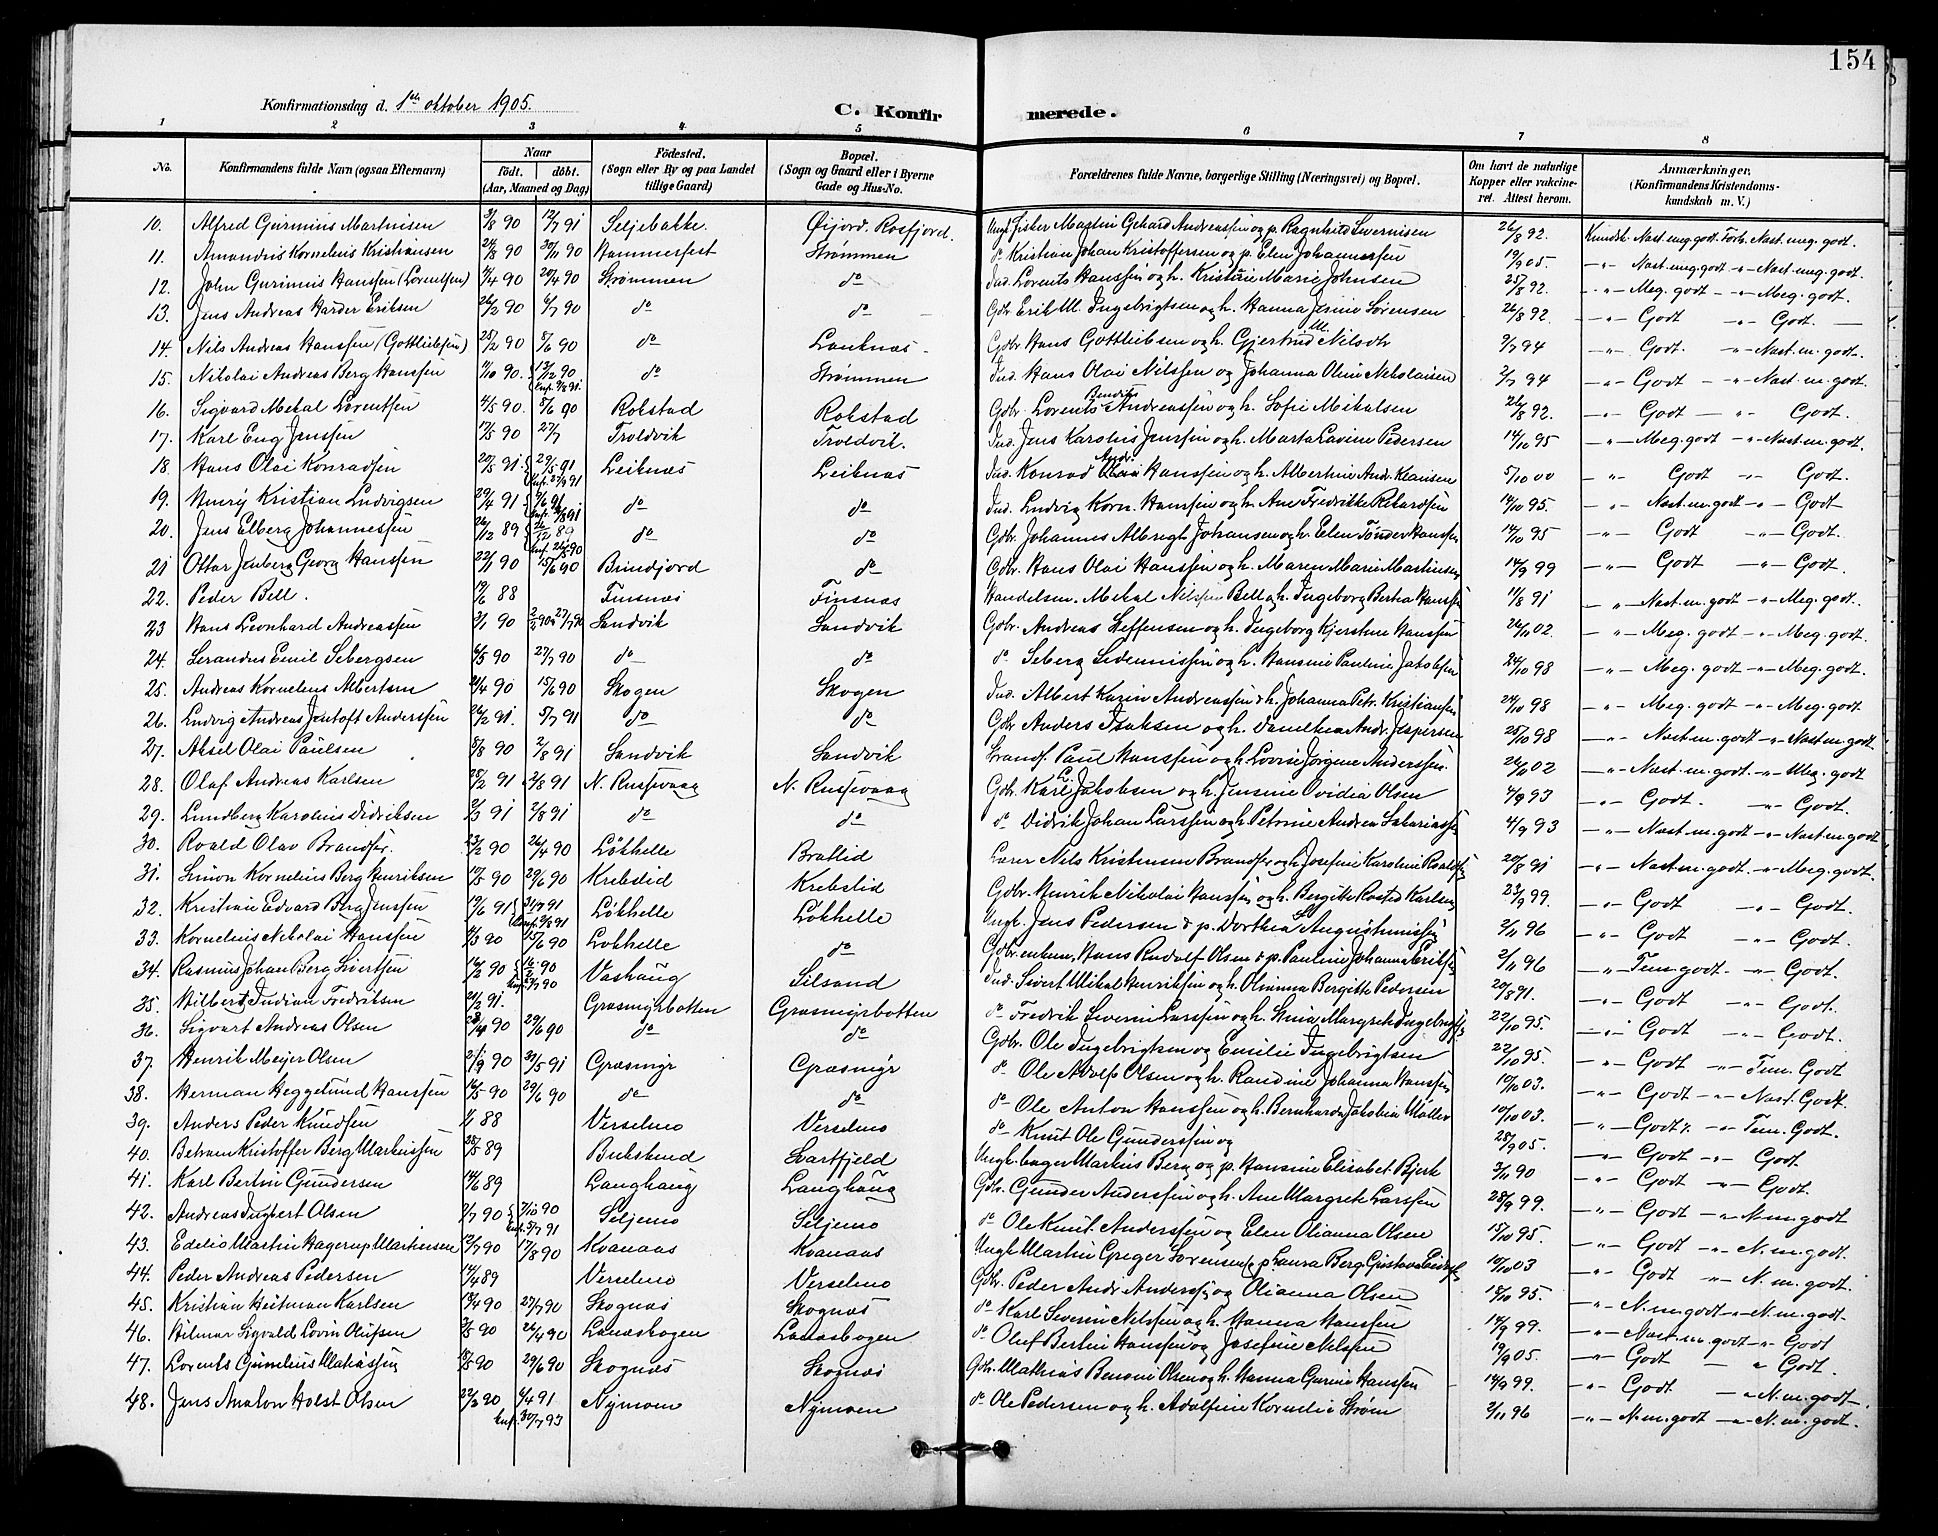 154
Konfirmationsdag d. 1ste oktober 1905.
C. Konfirmerede.
1 2 3 4 5 6 7 8
No. Konfirmandens fulde Navn (ogsaa Efternavn) Naar født. døbt. (Aar, Maaned og Dag) Fødested. (Sogn eller By og paa Landet tillige Gaard) Bopæl. (Sogn og Gaard eller i Byerne Gade og Hus-No. Forældrenes fulde Navne, borgerlige Stilling (Næringsvei) og Bopæl. Om havt de naturlige Kopper eller vakcineret. Attest herom. Anmærkninger. (Konfirmandens Kristendomskundskab m. V.)
10. Alfred Gurinius Martinisen 3/8 90 12/7 91 Seljebakke. Øijord. Rosfjord. Ungk. fisker Martin Gehard Andreassen og p. Ragnhild Severnisen 26/8 92. Kundsk. Nast. meg. godt. Forh. Nast. meg. godt.
11. Amandus Kornelius Kristiansen 24/8 90 30/11 90 Hammerfest Strømmen do Kristian Johan Kristoffersen og p. Elen Johannessen 19/9 05. -"- Nast. meg. godt -"- Nast. meg. godt.
12. John Gurinius Hanssen (Lorentsen) 4/4 90 20/4 90 Strømmen do Ind. Lorents Hanssen og h. Kristine Marie Johnsen 25/8 92. -"- Meg. godt -"- Meg. godt.
13. Jens Andreas Harder Eriksen 26/2 90 6/7 90 do do Gdbr Erik M. Ingebrigtsen og h. Hanna Jesine Sørensen 26/8 92 -"- Godt -"- Godt.
14. Nils Andreas Hanssen (Gottliebsen) 25/2 90 8/6 90 do Lauknæs Gdbr Hans Gottliebsen og h. Gjertrud M. Nilsdtr 9/7 94 -"- Godt. -"- Nast. m. godt.
15. Nikolai Andreas Berg Hanssen 11/10 90. 13/12 90 do Strømmen Ind. Hans Olai Nilssen og Johanna Oline Nikolaisen 2/7 94 -"- Godt -"- Nast. m. godt.
16. Sigvard Mekal Lorentsen 4/5 90. 8/6 90 Rokstad Rokstad Gdbr. Lorents Bendiks Andreassen og h. Sofie Mikalsen 26/8 92. -"- Godt -"- Godt.
17. Karl Eug Jenssen 17/5 90 27/7 Troldvik Troldvik. Ind. Jens Karolius Jenssen og h. Marta Lavine Pedersen 14/10 95 -"- Meg. godt -"- Nast. m. godt.
18. Hans Olai Konradsen 20/5 91. 29/5 91 Leiknæs Leiknæs Ind. Konrad And. Hanssen og h. Albertine Andr. Klausen 5/10 00 -"- Godt -"- Godt
19. Henry Kristian Ludvigsen 29/4 91 9/6 91 do do Ind. Ludvig Korn. Hanssen og h. Ane Fredrikke Rikardsen 14/10 95. -"- Nast. m. godt -"- Godt
20. Jens Elberg Johannessen 26/12 89 do do Gdbr. Johannes Albregt Johansen og h. Elen Tønder Hanssen 14/10 95 -"- Godt -"- Godt.
21 Ottar Jenberg Georg Hanssen 22/1 90 15/6 90 Brendjord do Gdbr. Hans Olai Hanssen og h. Maren Marie Martinsen 14/9 99 -"- Godt -"- Godt.
22. Peder Bell. 19/6 88 Finsnæs Finsnæs Handelsm. Mekal Nilssen Bell og h. Ingeborg Bertea Hanssen 11/8 91 -"- Nast. m. godt -"- Meg. godt.
23 Hans Leonhard Andreassen 3/1 90 27/7 90 Sandvik Sandvik Gdbr. Andreas Steffensen og h. Ingeborg Kjerstine Hanssen 26/11 02. -"- Meg. godt -"- Meg. godt.
24. Serandus Emil Sebergsen 6/5 90 27/7 90 do do do Seberg Sedenissen og h. Hansine Pauline Jakobsen 24/10 98 -"- Meg. godt -"- Meg. godt.
25. Andreas Kornelius Albertsen 21/4 90 15/6 90 Skogen Skogen Ind. Albert Karin Andreassen & h. Johanna Petr. Kristiansen 24/10 98 -"- Meg. godt -"- Meg. godt.
26. Ludvig Andreas Jentoft Anderssen 26/2 91. 5/7 91 do do Gdbr Anders Isaksen og h. Danelhea Andr. Jespersen 25/10 98 -"- Nast. m. godt -"- Nast. m. godt
27. Aksel Olai Paulsen 8/8 90 2/8 91 Sandvik Sandvik Strands. Paul Hanssen og h. Lovise Jørgine Anderssen. 26/11 02 -"- Nast. m. godt. -"- Meg. godt
28. Olaf Andreas Karlsen 25/2 91 2/8 91 N. Russevaag N. Russevaag Gdbr. Karl Jakobsen og h. Jensine Ovidia Olsen 4/9 93 -"- Godt. -"- Godt.
29. Lundberg Karolius Didriksen 2/3 91 2/8 91 do do do Didrik Johan Larssen og h. Petrine Andrea Sakariassen 4/9 93 -"- Nast. m. godt -"- Nast. m. godt
30. Roald Olav Brandser. 23/2 90 26/4 90 Løkhelle Bratlid Lærer Nils Kristensen Brandser og h. Josefine Karoline Roaldsen 20/8 91 -"- Nast. m. godt. -"- Meg. godt.
31. Simon Kornelius Berg Henriksen 17/5 90 29/6 90 Krebslid Krebslid Gdbr. Henrik Nikolai Hanssen og h. Bergitte Rosted Karlsen 23/9 99. -"- Godt -"- Godt.
32. Kristian Edvard Berg Jenssen 19/6 91 31/7 91 Løkhelle Løkhelle Ungk. Jens Pedersen & p. Dorthea S. Augustinussen 2/11 96 -"- Godt -"- Godt.
33. Kornelius Nikolai Hanssen 4/3 90 15/6 90 Løkhelle do Gdbr. enkem. Hans Rudolf Olsen & p. Pauline Johanna Eriksen 2/11 96 -"- Tem. godt. -"- Godt.
34. Rasmus Johan Berg Sivertsen 16/2 90 Vashaug Silsand Ind. Sivert Mikal Henriksen og h. Olianna Bergitte Pedersen 20/8 91. -"- Godt -"- Godt.
35. Hilbert Indian Fredriksen 21/2 91. Græsmyrbotten Græsmyrbotten do Fredrik Severin Larssen og h. Stina Margreth Ingebrigts. 22/10 95. -"- Godt -"- Godt.
36. Sigvart Andreas Olsen 29/6 90 do do Gdbr. Ole Ingebrigtsen og Emilie Ingebrigtsen 22/10 95. -"- Godt -"- Tem. Godt
37. Henrik Meijer Olsen 21/9 90 31/5 91 Græsmyr Græsmyr do Ole Adolf Olsen og h. Randine Johanna Hanssen 10/10 03. -"- Godt -"- Nast. Godt.
38. Herman Heggelund Hanssen 16/5 90 29/6 90 do do do Ole Anton Hanssen og h. Bernharda Jakobia Møller 10/10 03. -"- Godt. -"- Tem. Godt.
39. Anders Peder Knudsen 1/1 88 Verselmo Verselmo do Knut Ole Gunderssen og 28/9 05. -"- Godt -"- Godt.
40. Betram Kristoffer Berg Markussen 28/5 89 Bukskind Svartfjeld Ungk. bager Markus Berg og p. Hansine Elisabet Bjerk 3/11 90 -"- Godt -"- Godt.
41. Karl Bertin Gundersen 14/6 89 Langhaug Langhaug Gdbr. Gunder Anderssen og h. Ane Margrete Larssen 28/9 99. -"- Godt -"- N. m. godt
42. Andreas Ingbert Olsen 2/7 90 7/10 90 Seljemo Seljemo do Ole Knut Anderssen og Elen Olianna Olsen 15/10 95. -"- Godt -"- N. m. godt.
43. Edelio Martin Hagerup Martinsen 12/7 90 17/8 90 Kvanaas Kvanaas Ungk Martin Greger Sorensen & p. Laura Berg 10/10 03 -"- Godt -"- N. m. godt.
44. Peder Andreas Pedersen 14/4 89 Verselmo Verselmo Gdbr. Peder Andr. Anderss. og Olianna Olsen 12/10 95. -"- N. m. godt -"- N. m. godt.
45. Kristian Heitman Karlsen 13/4 90 27/7 90 Skognæs Skognæs do Karl Severin Nilssen og h. Hanna Hanssen 14/9 99. -"- Nast. m. godt -"- Godt
46. Hilmar Sigvald Lovin Olufsen 3/5 90 26/4 90 Landskogen Landskogen do Oluf Bertin Hanssen og Josefine Nilssen 19/9 05. -"- Godt -"- Godt.
47. Lorents Gunelius Matiassen 18/5 90 29/6 90 Skognæs Skognæs Gdbr. Mathias Benoni Olsen og h. Hanna Gurine Hanssen 14/9 99. -"- Godt -"- N. m. godt.
48. Jens Anaton Holst Olsen 22/3 90 4/4 91 Nymoen Nymoen do Ole Pedersen og h. Adolfine Kornelie Strøm 2/11 96 -"- N. m. godt -"- N. m. godt.